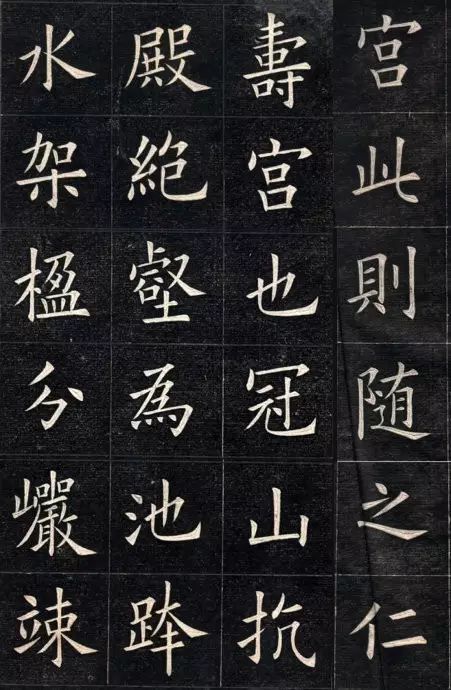 宮此則随之仁
壽宮也冠山抗
殿絶壑為池跨
水架楹分巖竦